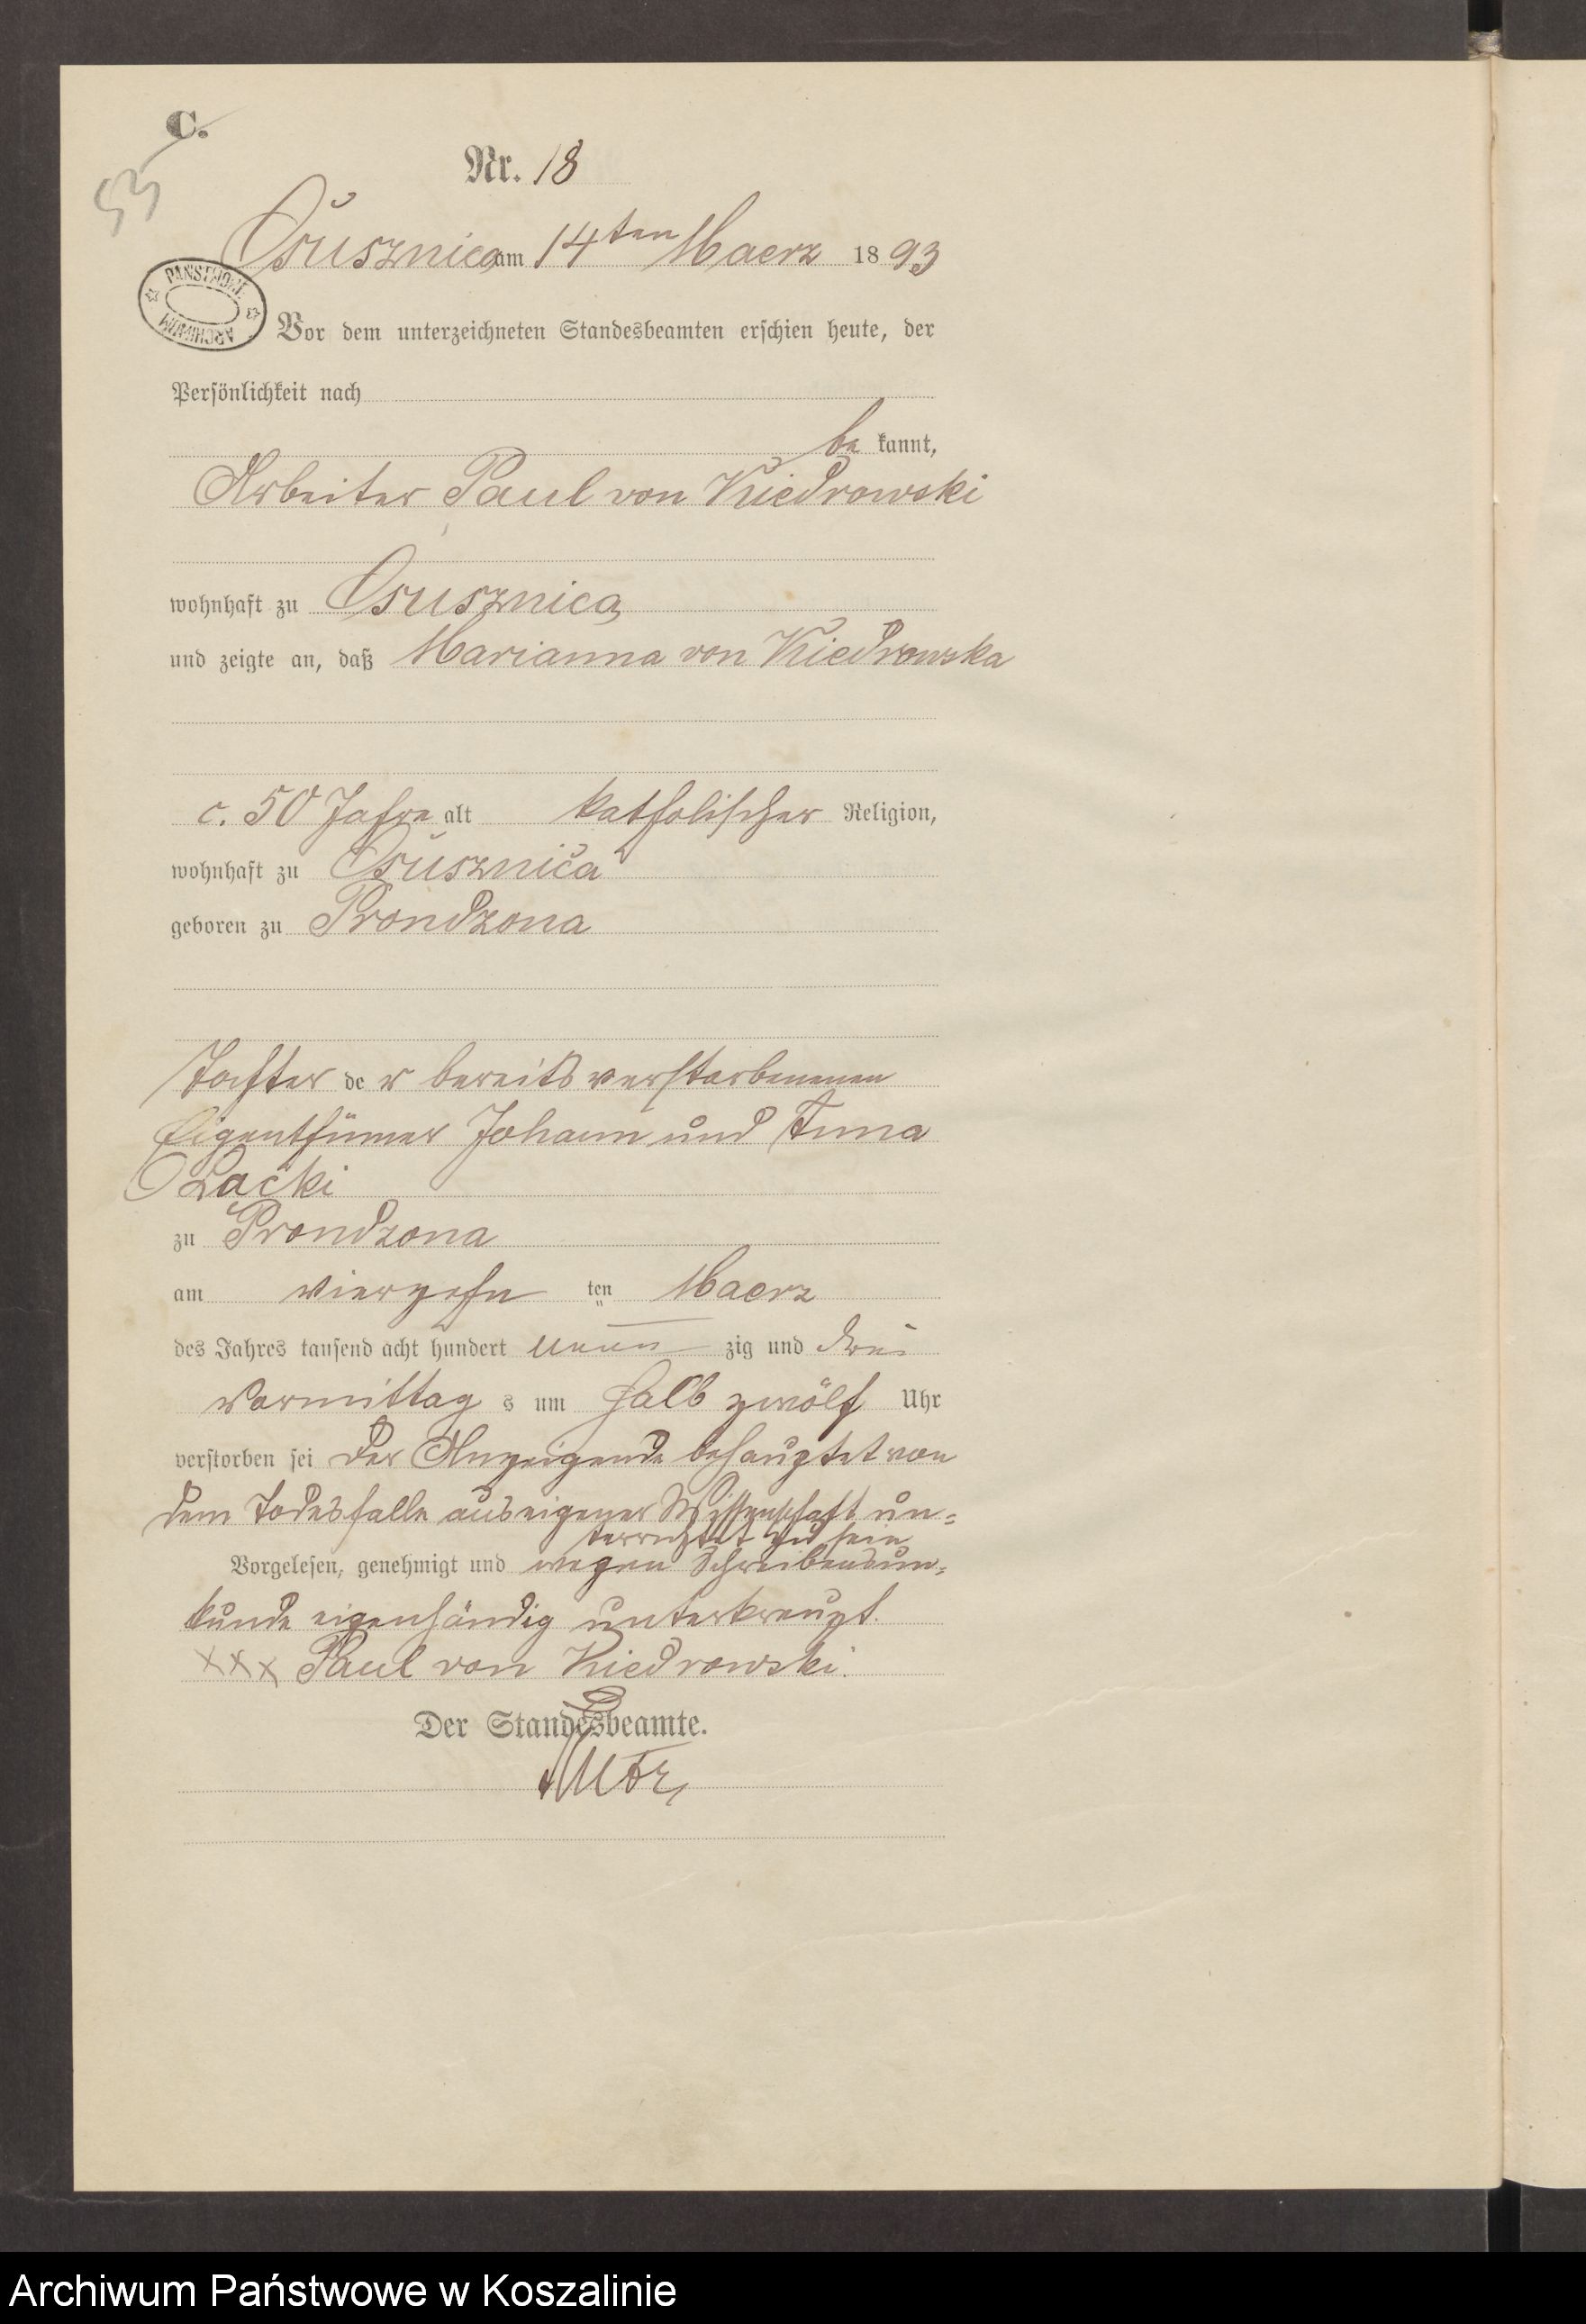 C.
53
Nr. 18
Osusznica am 14ten Maerz 1893
PAŃSTWOWE ARCHIWUM
Vor dem unterzeichneten Standesbeamten erschien heute, der
Persönlichkeit nach
be kannt,
Arbeiter Paul von Kiedrowski
wohnhaft zu Osusznica
und zeigte an, daß Marianna von Kiedrowska
c. 50 Jahre alt katholischer Religion,
wohnhaft zu Osusznica
geboren zu Prondzona
Tochter der bereits verstorbenenen
Eigenthümer Johann und Anna
Lacki
zu Prondzona
am vierzehn ten Maerz
des Jahres tausend acht hundert neun zig und drei
Vormittag s um halb zwölf Uhr
verstorben sei Der Anzeigende behauptet von
dem Todesfalle aus eigener Wissenschaft un=
terrichtet zu sein
Vorgelesen, genehmigt und wegen Schreibensun=
kunde eigenhändig unterkreuzt.
xxx Paul von Kiedrowski.
Der Standesbeamte.
Archiwum Państwowe w Koszalinie